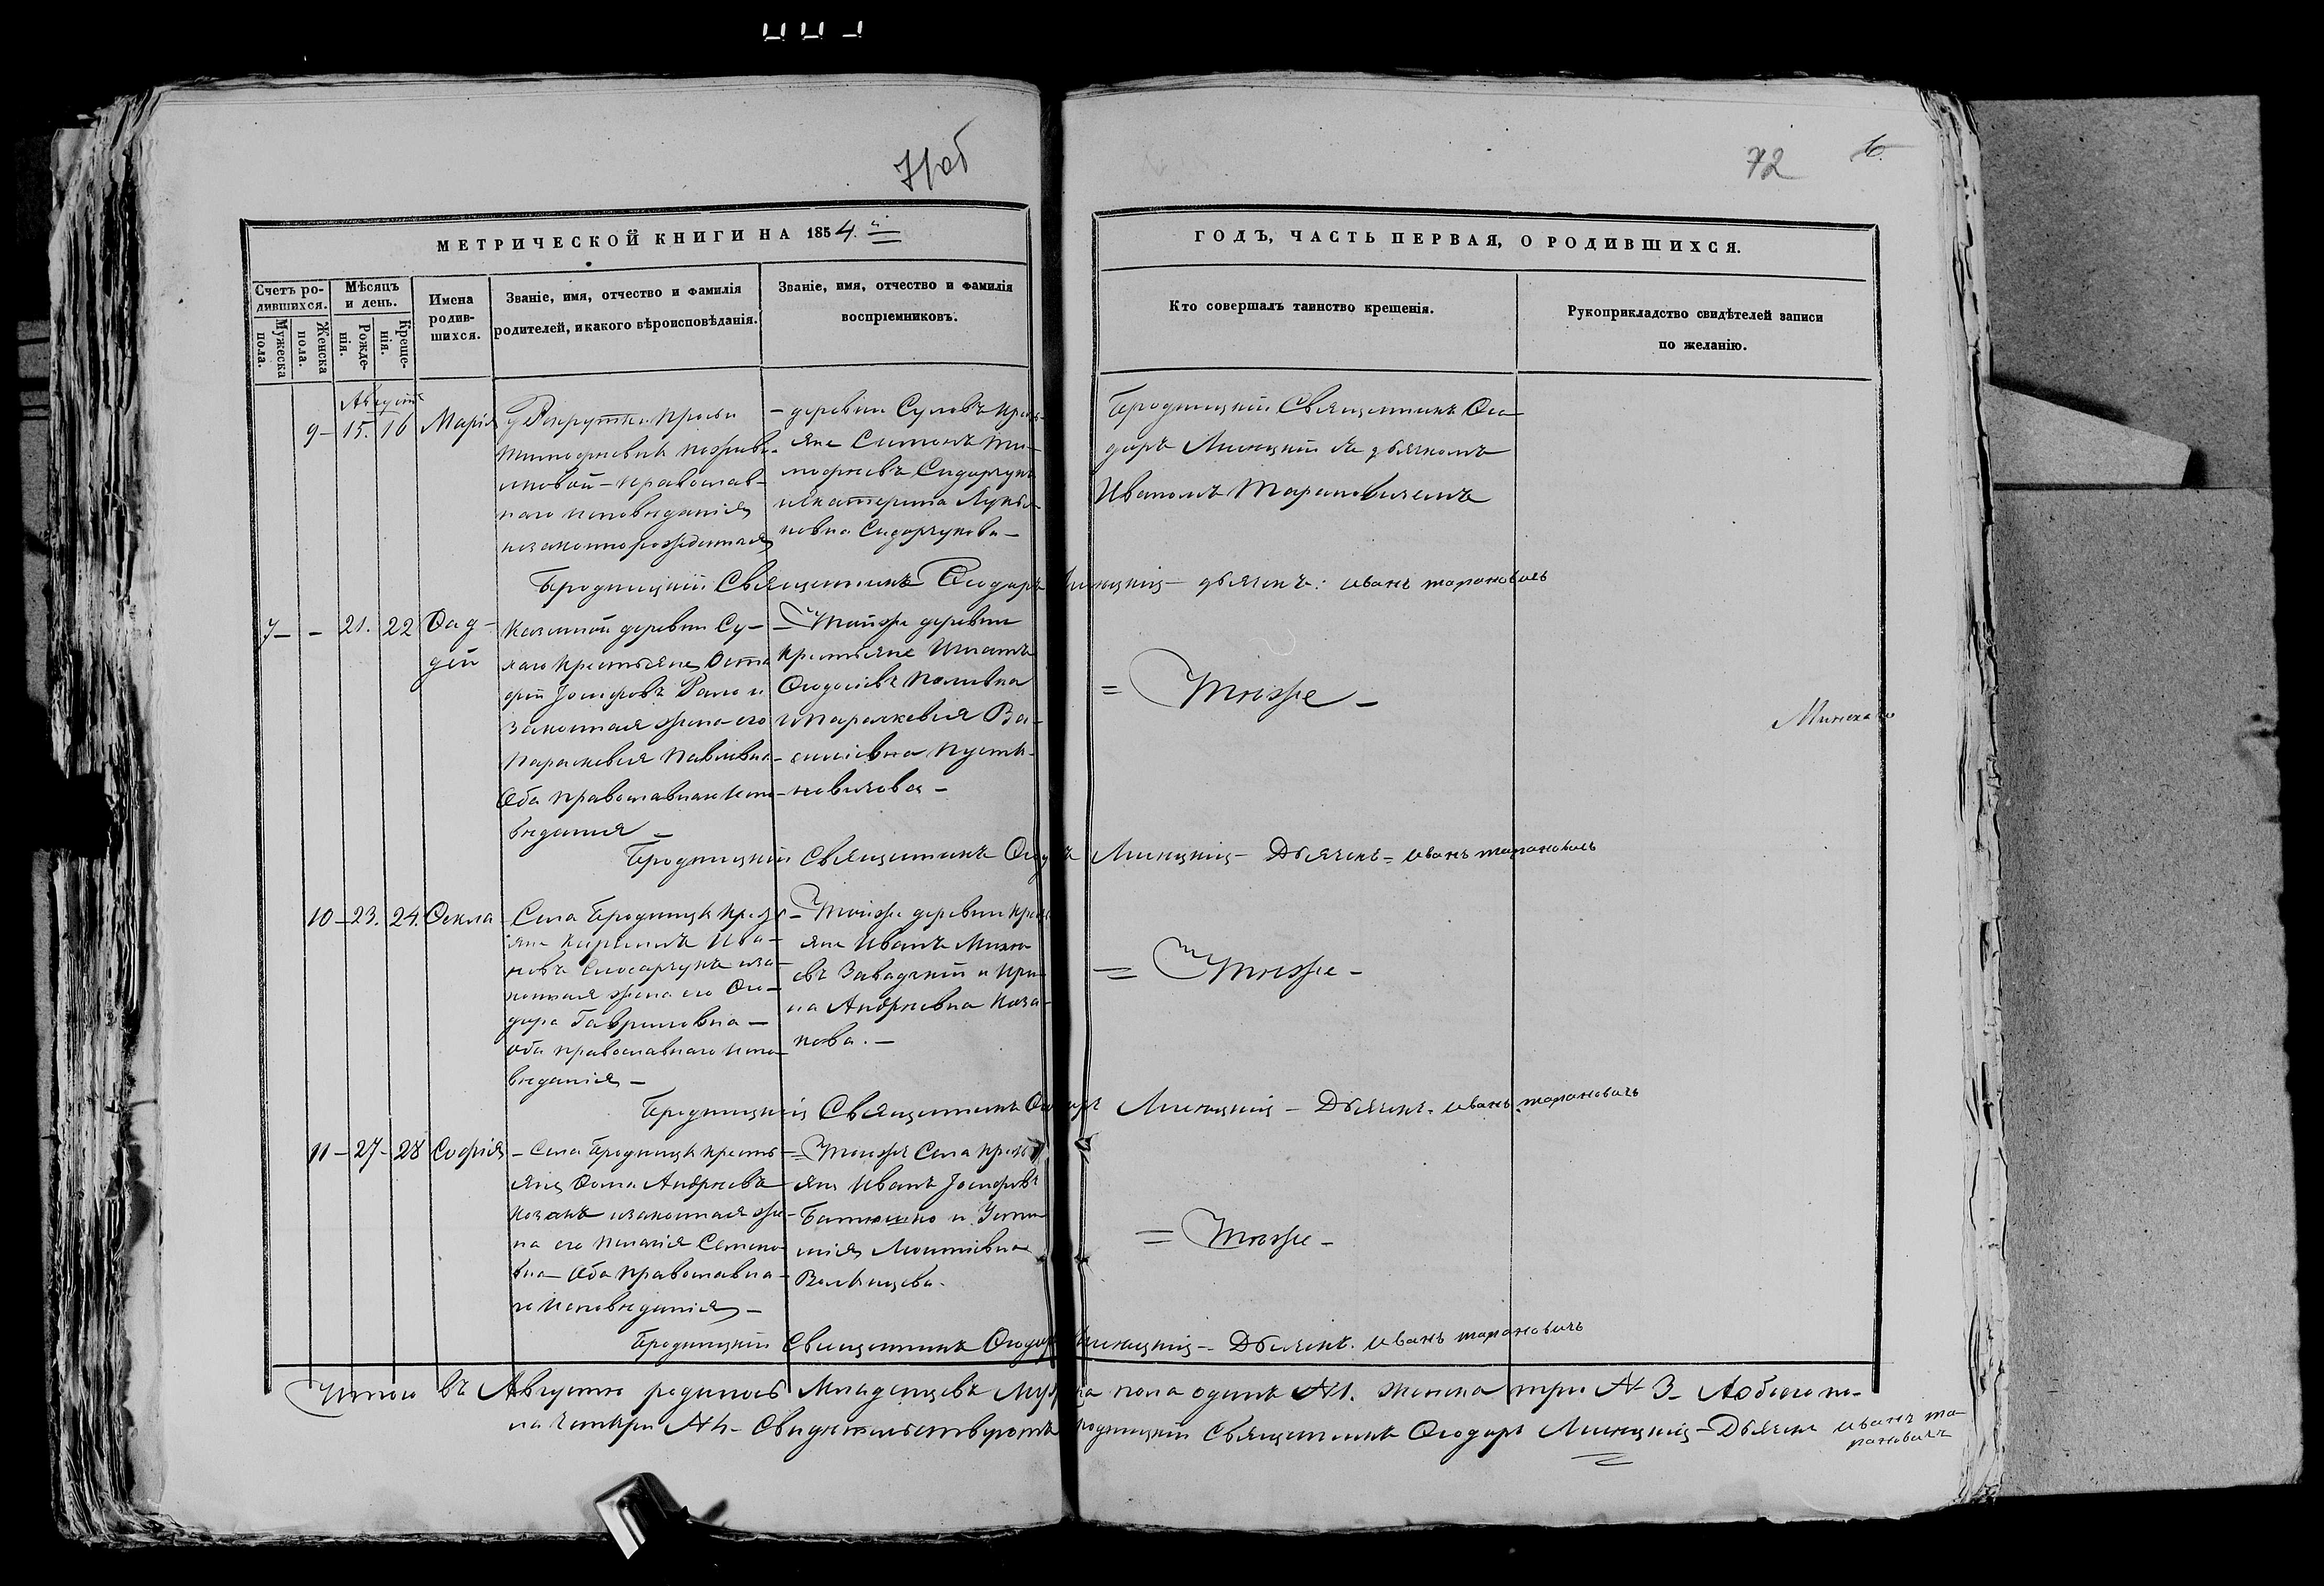 71об
72
6.
МЕТРИЧЕСКОЙ КНИГИ НА 1854.й
ГОДЪ, ЧАСТЬ ПЕРВАЯ, О РОДИВШИХСЯ.
Счетъ ро-
дившихся.
Мужеска
пола.
Женска
пола.
Мѣсяцъ
и день.
Рожде-
нія.
Креще-
нія.
Имена
родив-
шихся.
Званіе, имя, отчество и фамилія
родителей, и какого вѣроисповѣданія.
Званіе, имя, отчество и фамилія
воспріемниковъ.
Кто совершалъ таинство крещенія.
Рукоприкладство свидѣтелей записи
по желанію.
Августъ
9 - 15. 16
Марія
у Рекрутки
Тимофѣевны
православ-
наго исповѣданія
незаконнорожденная
- деревни Суловъ кресть-
яне Симонъ Ти-
мофѣевъ Сидорчукъ
и Екатерина Лукья-
новна Сидорчукова -
Бродницкій Священникъ Ѳео-
доръ Линицкій съ дьячкомъ
Иваномъ Тарановичемъ
Бродницкій Священникъ Ѳеодоръ Линицкій - дьячекъ: Иванъ Тарановичъ
7 - - 21. 22
Ѳад-
дей
Казенной деревни Су-
крестьяне Оста-
фій Іосифовъ и
Законная жена его
Параскевія Павловна
Оба православнаго испо-
вѣданія -
- Тойже деревни
крестьяне Игнатъ
Ѳеодосіевъ
и Параскевія Ва-
силіевна Пусти-
новичова -
= Тоѣже -
Бродницкій Священникъ Линицкій - Дьячекъ - Иванъ Тарановичъ
10 - 23. 24.
Ѳекла
- Села Бродницы кресть-
яне Кириллъ Ива-
новъ Слюсарчукъ иза-
конная жена его Ѳео-
дора Гавриловна -
оба православнаго испо-
вѣданія -
- Тойже деревни кресть-
яне Иванъ
Завадзкій и Ири-
на Андрѣевна Коза-
кова. -
= Тоѣже -
Бродницкій Священникъ Линицкій - Дьячекъ - Иванъ Тарановичъ
11 - 27 - 28
Софія
- Села Бродницы кресть-
яне Ѳома Андрѣевъ
Козакъ изаконная же-
на его Пелагія Семено-
вна - Оба православна-
го исповѣданія -
= Тогоже Села кресть-
яне Иванъ Іосифовъ
Батюшко и Усти-
нія Леонтіевна
= Тоѣже -
Бродницкій Священникъ Ѳеодоръ Линицкій - Дьячекъ. Иванъ Тарановичъ
Итого въ Августѣ родилось Младенцевъ Мужеска пола одинъ № 1. женска три № 3 - А обоего по-
ла четыри № 4 - Свидѣтельствуютъ Бродницкій Священникъ Ѳеодоръ Линицкій - Дьячекъ Иванъ Та-
рановичъ